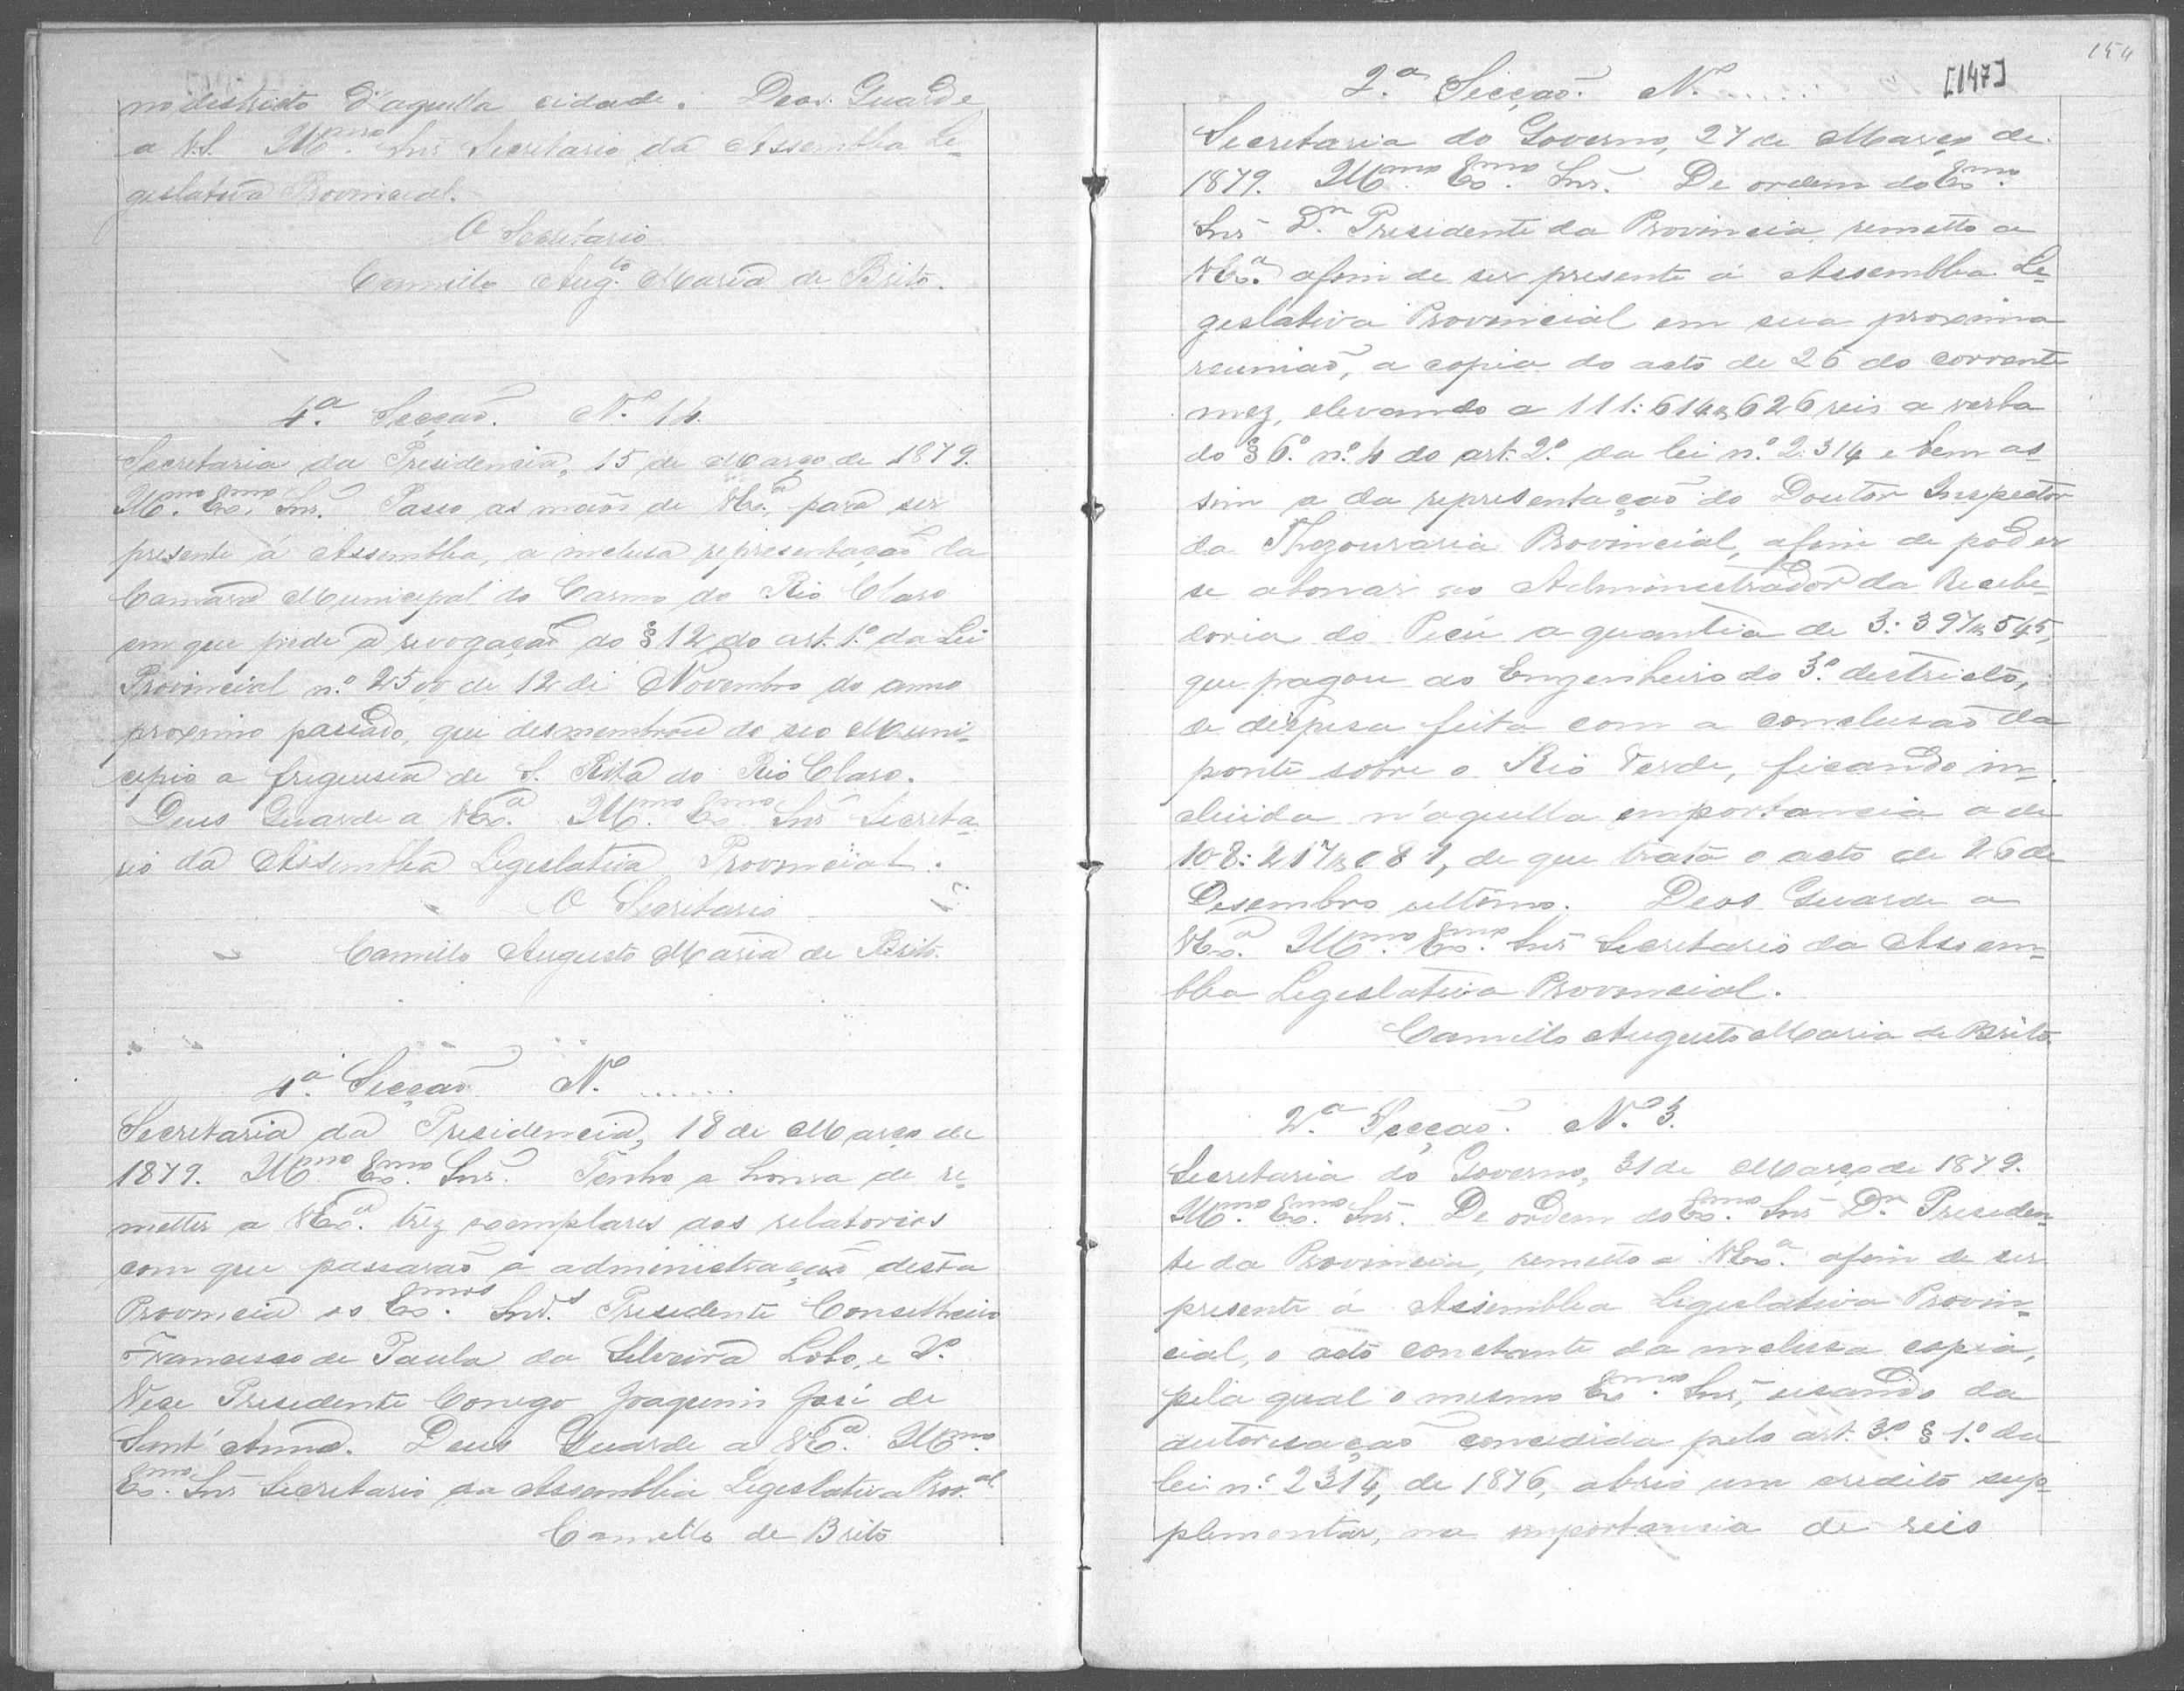 no districto d'aquella cidade. Deos Guarde
a V.S. Illmo. Snr. Secretario da Assemblea Le-
gislativa Provincial.
O Secretario
Camillo Augto. Maria de Brito.
4.a Secção. N.o 14.
Secretaria da Presidencia, 15 de Março de 1879.
Illmo. Exmo. Snr. Passo as mãos de VExa. para ser
presente á Assemblea, a inclusa representação da
Camara Municipal do Carmo do Rio Claro
em que pede a revogação do § 12 do art. 1.o da Lei
Provincial n.o 2500 de 12 de Novembro do anno
proximo passado, que desmembrou do seo Muni-
cipio a freguesia de S. Rita do Rio Claro.
Deus Guarde a VExa. Illmo. Exmo. Snr. Secreta-
rio da Assemblea Legislativa Provincial.
O Secretario
Camillo Augusto Maria de Brito.
4.a Secção N.o ......
Secretaria da Presidencia, 18 de Março de
1879. Illmo. Exmo. Snr. Tenho a honra de re-
metter a VExa. trez exemplares dos relatorios
com que passarão a administração desta
Provincia os Exmos. Snrs. Presidente Conselheiro
Francisco de Paula da Silveira Lobo, e 2.o
Vice Presidente Conego Joaquim José de
Sant'Anna. Deus Guarde a VExa. Illmo.
Exmo. Snr. Secretario da Assemblea Legislativa Prov.al
Camillo de Brito
154
[147]
2.a Secção. N.o ......
Secretaria do Governo, 27 de Março de
1879. Illmo. Exmo. Snr. De ordem do Exmo.
Snr. Dr. Presidente da Provincia, remetto a
VExa. afim de ser presente á Assemblea Le-
gislativa Provincial em sua proxima
reunião, a copia do acto de 26 do corrente
mez, elevando a 111:614$626 reis a verba
do § 6.o n.o 4 do art. 2.o da lei n.o 2.314 e bem as-
sim a da representação do Doutor Inspector
da Thezouraria Provincial, afim de poder
se abonar ao Administrador da Recebe-
doria do Picú a quantia de 3:397$545,
que pagou ao Engenheiro do 3.o districto,
a despesa feita com a conclusão da
ponte sobre o Rio Verde, ficando in-
cluida n'aquella importancia a de
108:217$081, de que trata o acto de 26 de
Desembro ultimo. Deos Guarde a
VExa. Illmo. Exmo. Snr. Secretario da Assem-
blea Legislativa Provincial.
Camillo Augusto Maria de Brito.
2.a Secção. N.o 3.
Secretaria do Governo, 31 de Março de 1879.
Illmo. Exmo. Snr. De ordem do Exmo. Snr. Dr. Presiden-
te da Provincia, remetto a VExa. afim de ser
presente á Assemblea Legislativa Provin-
cial, o acto constante da inclusa copia,
pela qual o mesmo Exmo. Snr., usando da
autorisação concedida pelo art. 3.o § 1.o da
lei n.o 2314, de 1876, abrio um credito sup-
plementar, na importancia de reis